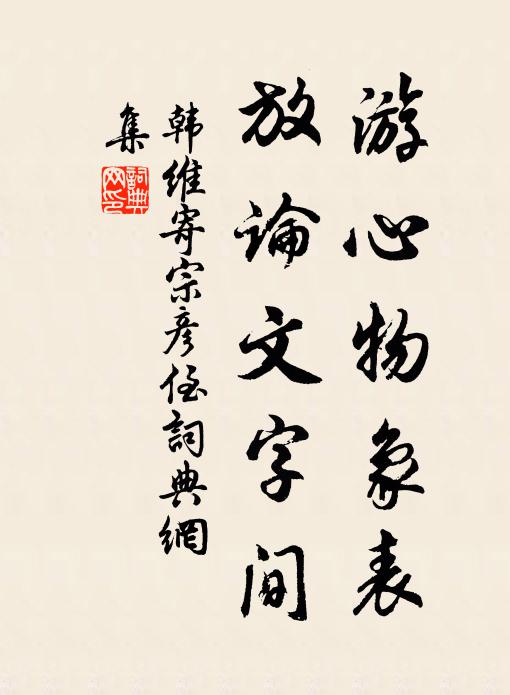 游心物象表
放論文字间
韩維寄宗彦侄詞典網
集
詞典
网印